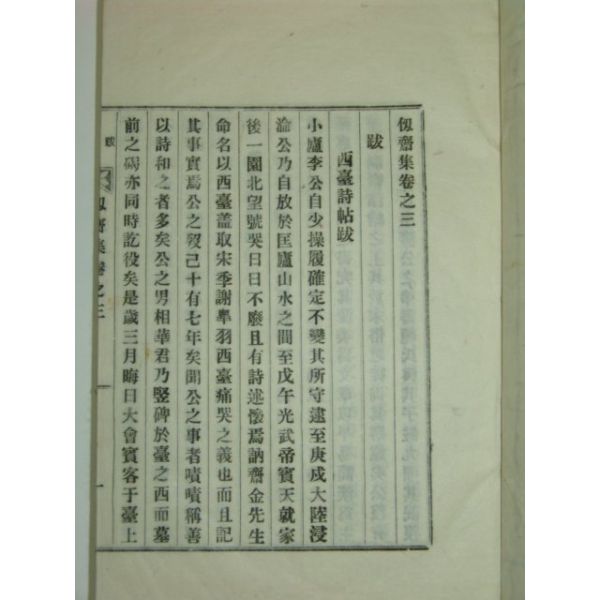 仭齋集卷之三
跋
西臺詩帖跋
小廬李公自少操履確定不變其所守逮至庚戌大陸浸
淪公乃自放於匡廬山水之間至戊午光武帝賓天就家
後一園北望號哭日日不廢且有詩述懷焉訥齋金先生
命名以西臺盖取宋季謝皐羽西臺痛哭之義也而且記
其事實焉公之歿已十有七年矣聞公之事者嘖嘖稱善
以詩和之者多矣公之男相華君乃竪碑於臺之西而墓
前之碣亦同時訖役矣是歲三月晦日大會賓客于臺上
跋
集卷之三
一